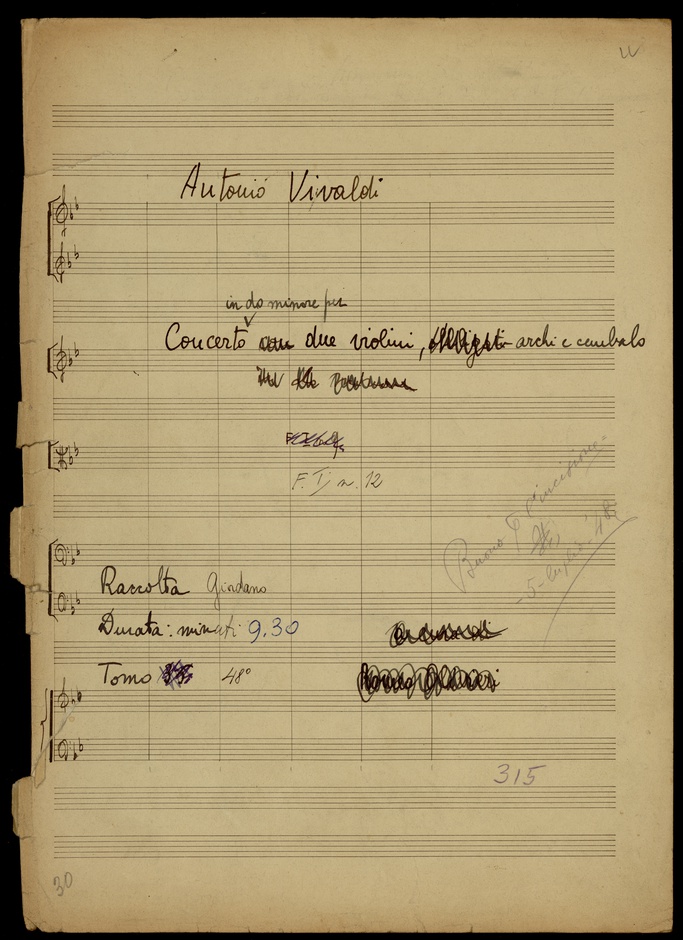 Antonio Vivaldi
in do minore per
Concerto due violini, archi e cembalo
F. I, n. 12
Buono p. l'incisione
5 - luglio - '48
Raccolta Giordano
Durata: minuti 9.30
Tomo 48°
315
30